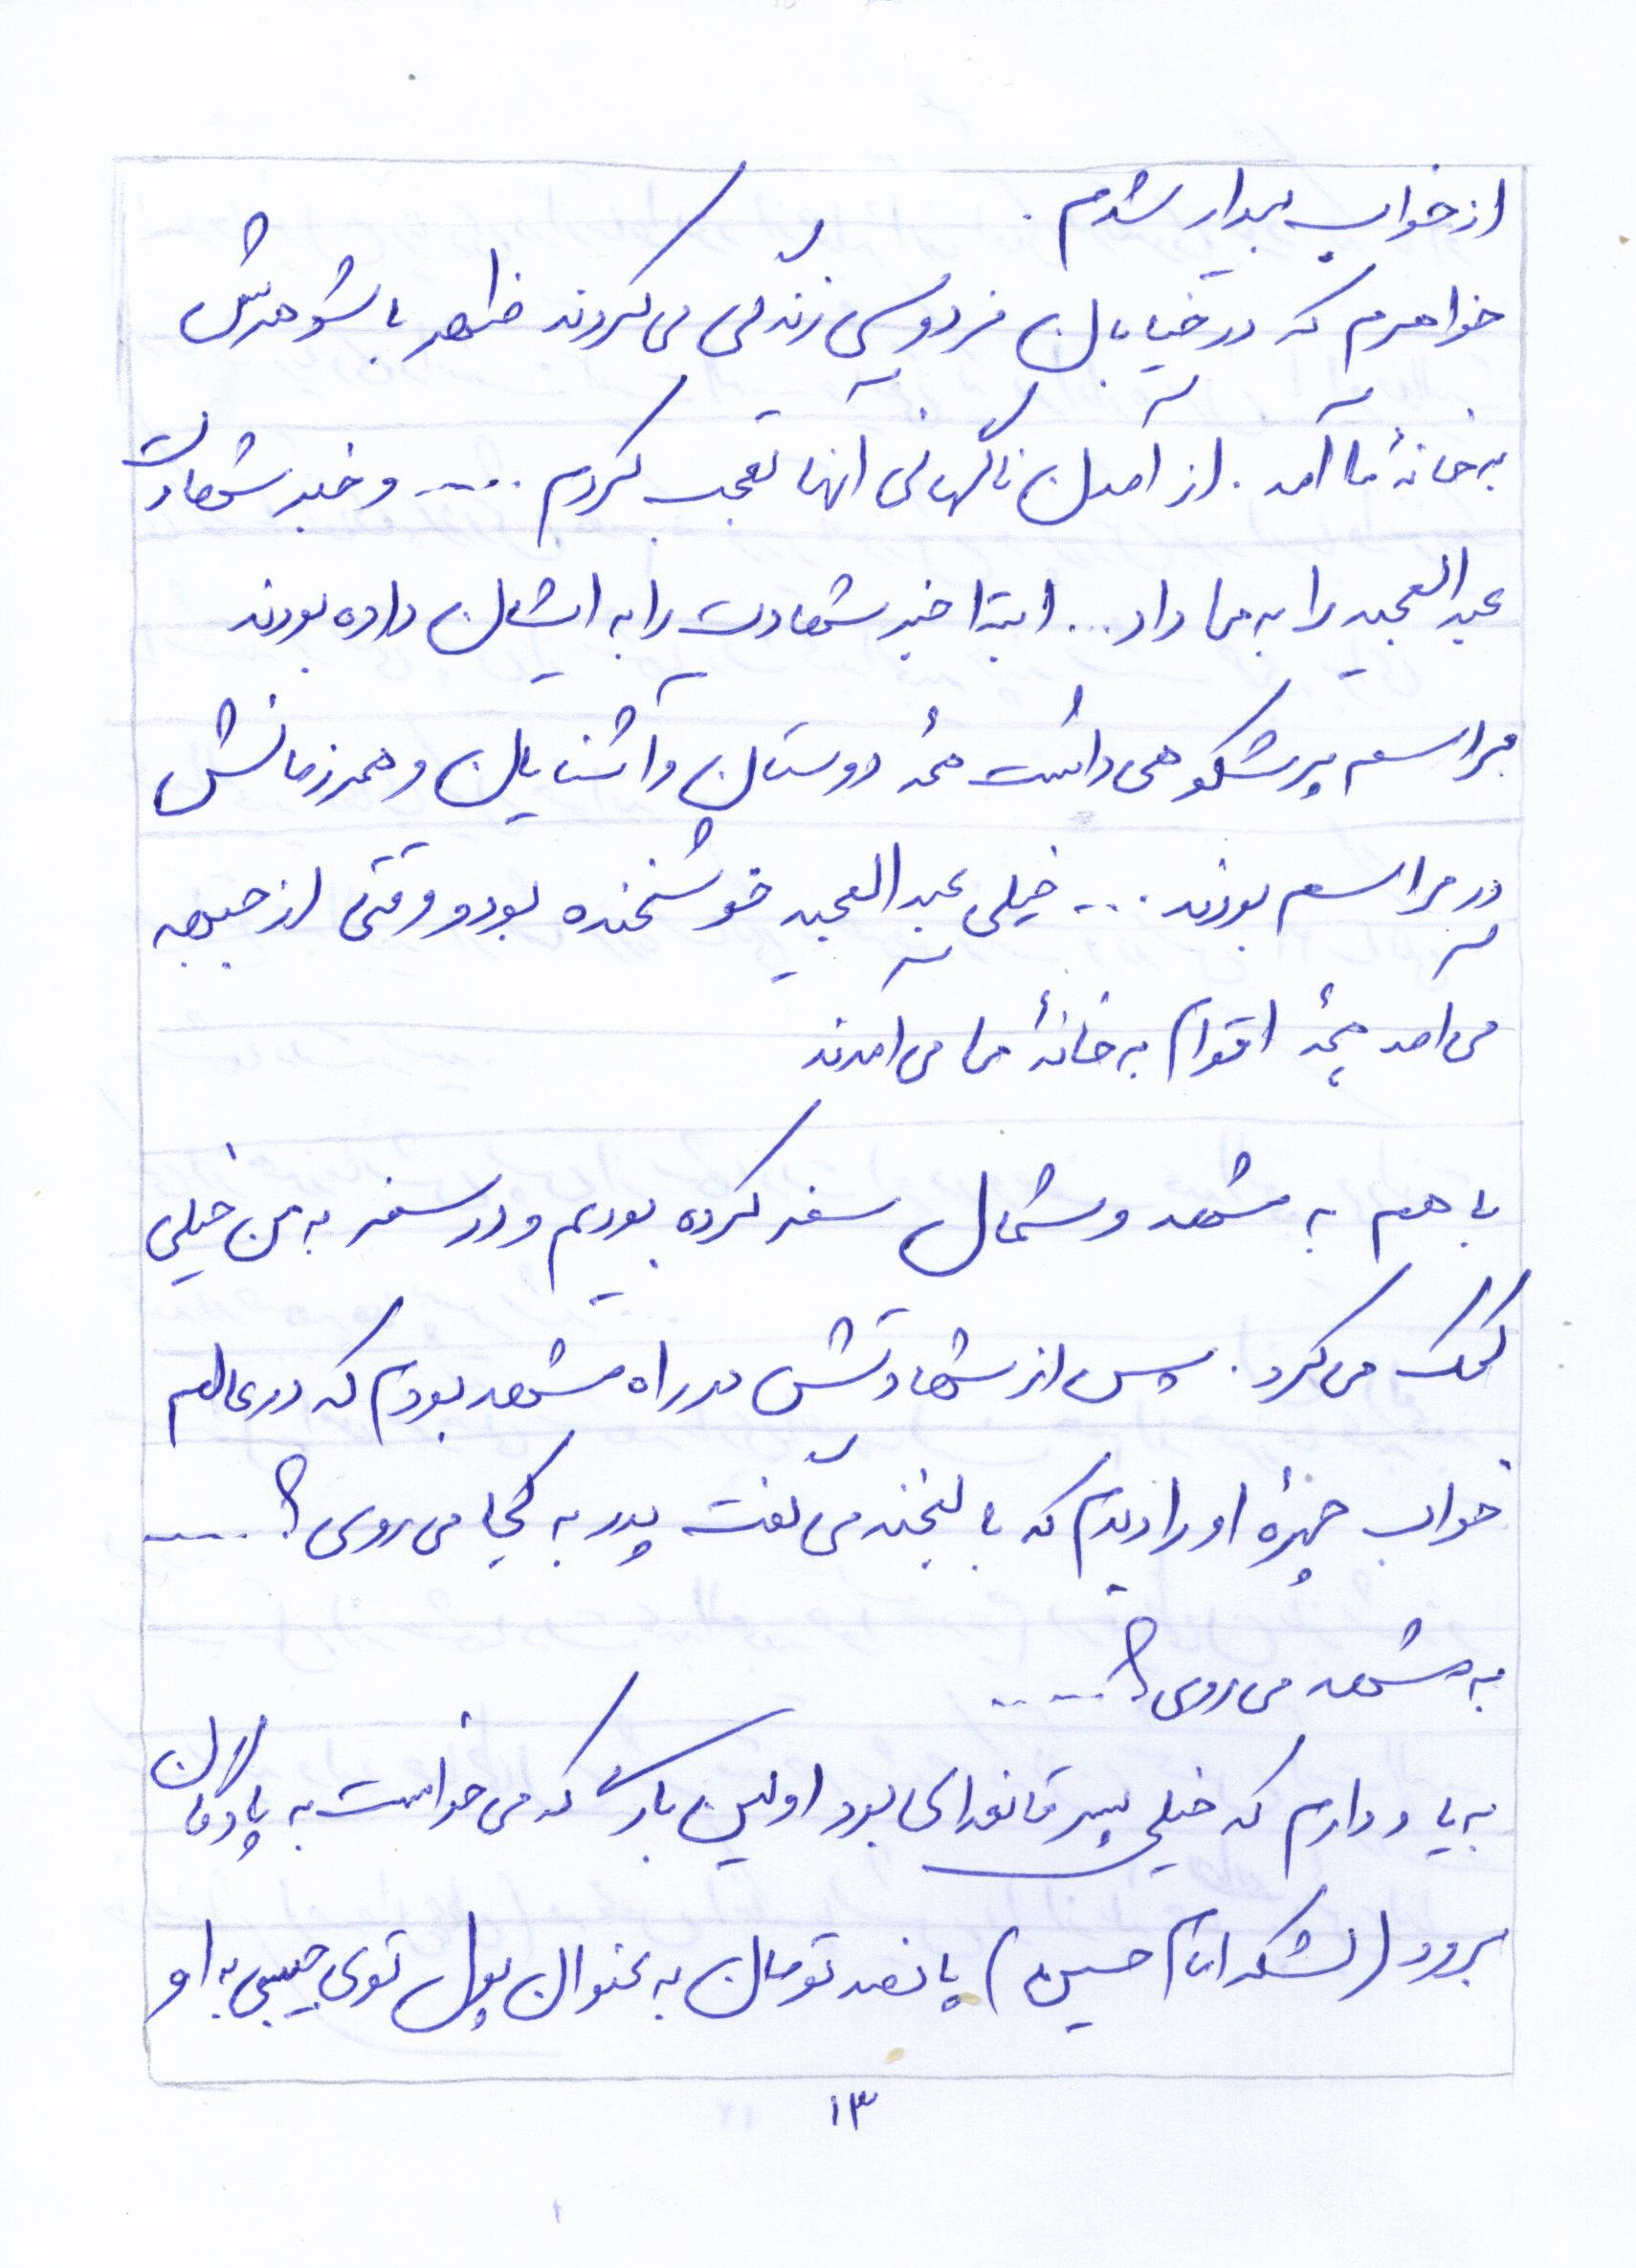 از خواب بیدار شدم.
خواهرم که در خیابان فردوسی زندگی می‌کردند ظهر با شوهرش
به خانهٔ ما آمد. از آمدن ناگهانی آنها تعجب کردم ..... و خبر شهادت
عبدالمجید را به ما داد... ابتدا خبر شهادت را به ایشان داده بودند
مراسم پرشکوهی داشت همهٔ دوستان و آشنایان و همرزمانش
در مراسم بودند .... خیلی عبدالمجید خوشخنده بود و وقتی از جبهه
می‌آمد همهٔ اقوام به خانهٔ ما می‌آمدند
با هم به مشهد و شمال سفر کرده بودیم و در سفر به من خیلی
کمک می‌کرد. پس از شهادتش در راه مشهد بودم که در عالم
خواب چهرهٔ او را دیدم که با لبخند می‌گفت پدر به کجا می‌روی؟ .....
به مشهد می‌روی؟ .....
به یاد دارم که خیلی پسر قانعی بود اولین بار که می‌خواست به پادگان
برود (لشکر امام حسین) پانصد تومان به عنوان پول توی جیبی به او
۱۳